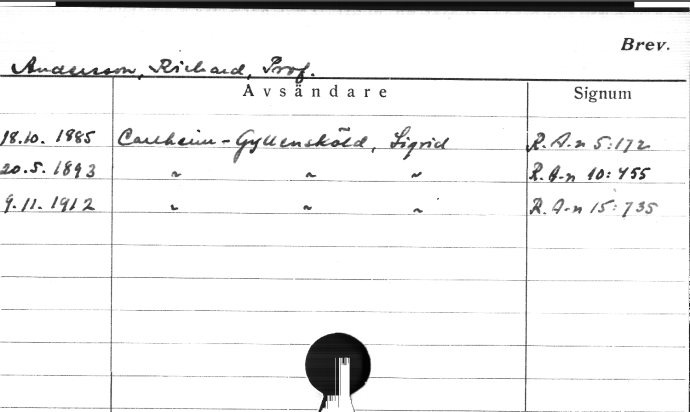 Brev.
Andersson, Richard, Prof.
Avsändare Signum
18.10. 1985 Carlheim-Gyllensköld, Sigrid R.A-n 5:172
20.5. 1893 ~ ~ ~ R.A-n 10:455
9.11. 1912 ~ ~ ~ R.A-n 15:735